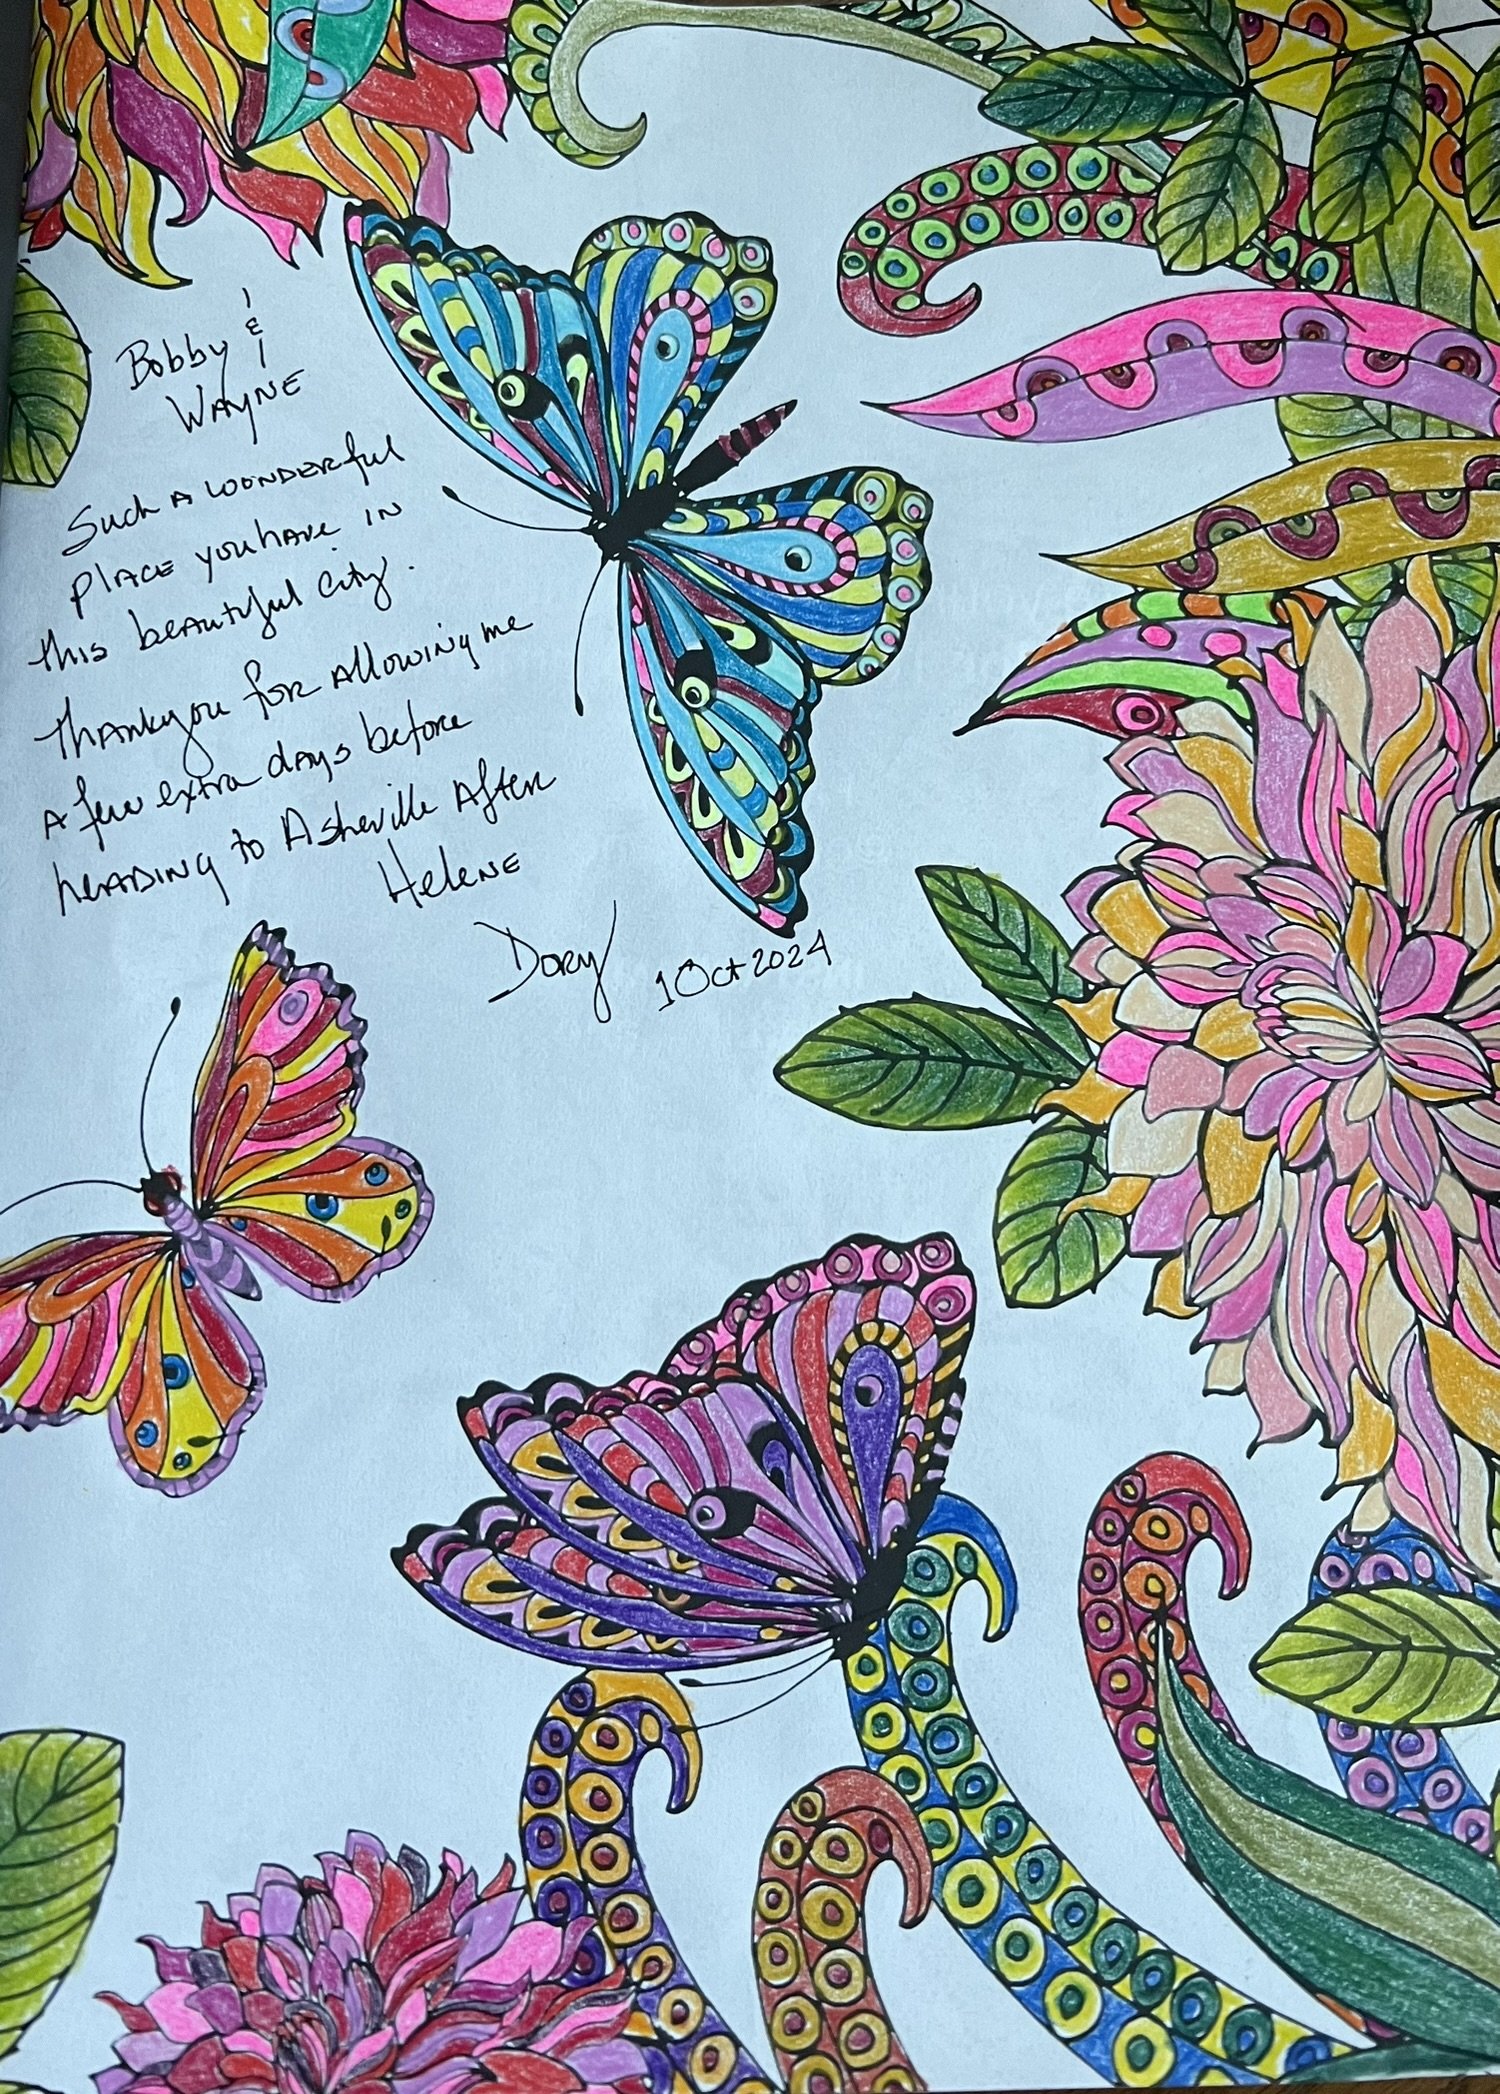 Bobby &
Wayne
Such a woonderful
place you have in
this beautiful city.
Thankyou for allowing me
a few extra days before
heading to Asheville after
Helene
Dory 1 Oct 2024